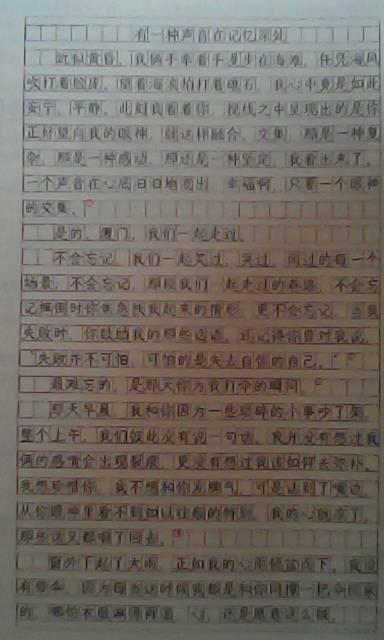 有一种声音在记忆深处
近似黄昏，我俩手牵着手漫步在海滩，任凭海风
吹打着脸庞，望着海浪拍打着礁石，我心中竟是如此
安宁、平静。此刻我看着你，视线之中呈现出的是你
正好望向我的眼神，就这样融合、交集，那是一种复
杂，那是一种感动，那还是一种坚定，我看出来了。
一个声音在心底日日地流出，幸福啊，只要一个眼神
的交集。
是的，厦门，我们一起走过。
不会忘记，我们一起笑过、哭过、闹过的每一个
场景，不会忘记，那段我们一起走过的春路，不会忘
记摔倒时你焦急扶我起来的情形，更不会忘记，当我
失败时，你鼓励我的那些话语，还记得你曾对我说，
“失败并不可怕，可怕的是失去自信的自己。”
最难忘的，是那天你为我打伞的瞬间。
那天早晨，我和你因为一些琐碎的小事吵了架，
整个上午，我们彼此没有说一句话，我并没有想过我
俩的感情会出现裂痕，更没有想过我该如何去弥补。
我想珍惜你，我不想和你发脾气，可是话到了嘴边，
从你眼神里看不到如以往般的特别，我的心凉了，
那些话又都咽了回去。
窗外下起了大雨，正如我的心雨倾盆而下。我没
有带伞，因为
的，哪怕衣服淋得再湿，心，还是愿意这么做。